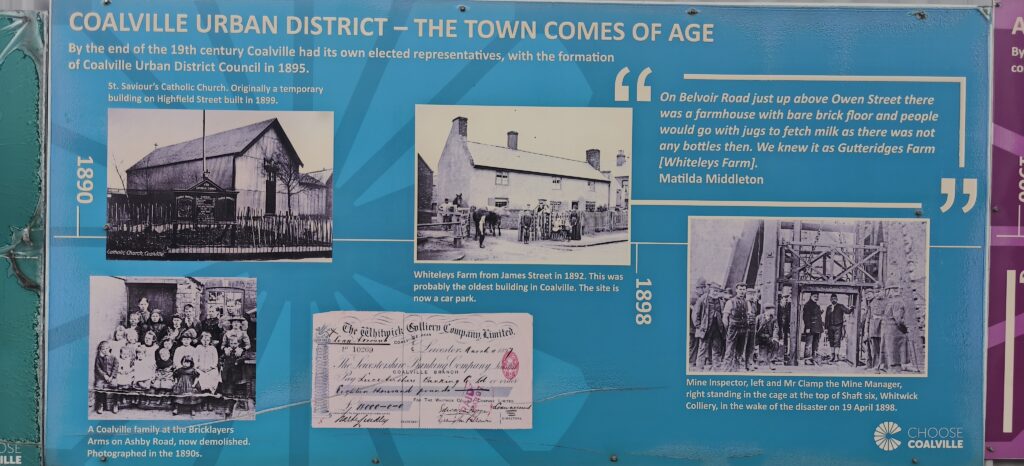 COALVILLE URBAN DISTRICT – THE TOWN COMES OF AGE
By the end of the 19th century Coalville had its own elected representatives, with the formation
of Coalville Urban District Council in 1895.
St. Saviour's Catholic Church. Originally a temporary
building on Highfield Street built in 1899.
Catholic Church, Coalville
1890
A Coalville family at the Bricklayers
Arms on Ashby Road, now demolished.
Photographed in the 1890s.
Whiteleys Farm from James Street in 1892. This was
probably the oldest building in Coalville. The site is
now a car park.
The Whitwick Colliery Company, Limited.
COALVILLE
No 10269
Leicester, March
The Leicestershire Banking Company Limited
COALVILLE BRANCH
Pay Leicestershire Banking Co Ld or order
thousand pounds
FOR THE WHITWICK COLLIERY COMPANY LIMITED
DIRECTORS
SECRETARY
“ On Belvoir Road just up above Owen Street there
was a farmhouse with bare brick floor and people
would go with jugs to fetch milk as there was not
any bottles then. We knew it as Gutteridges Farm
[Whiteleys Farm].
Matilda Middleton ”
1898
Mine Inspector, left and Mr Clamp the Mine Manager,
right standing in the cage at the top of Shaft six, Whitwick
Colliery, in the wake of the disaster on 19 April 1898.
CHOOSE
COALVILLE
OSE
VILLE
A
By
co